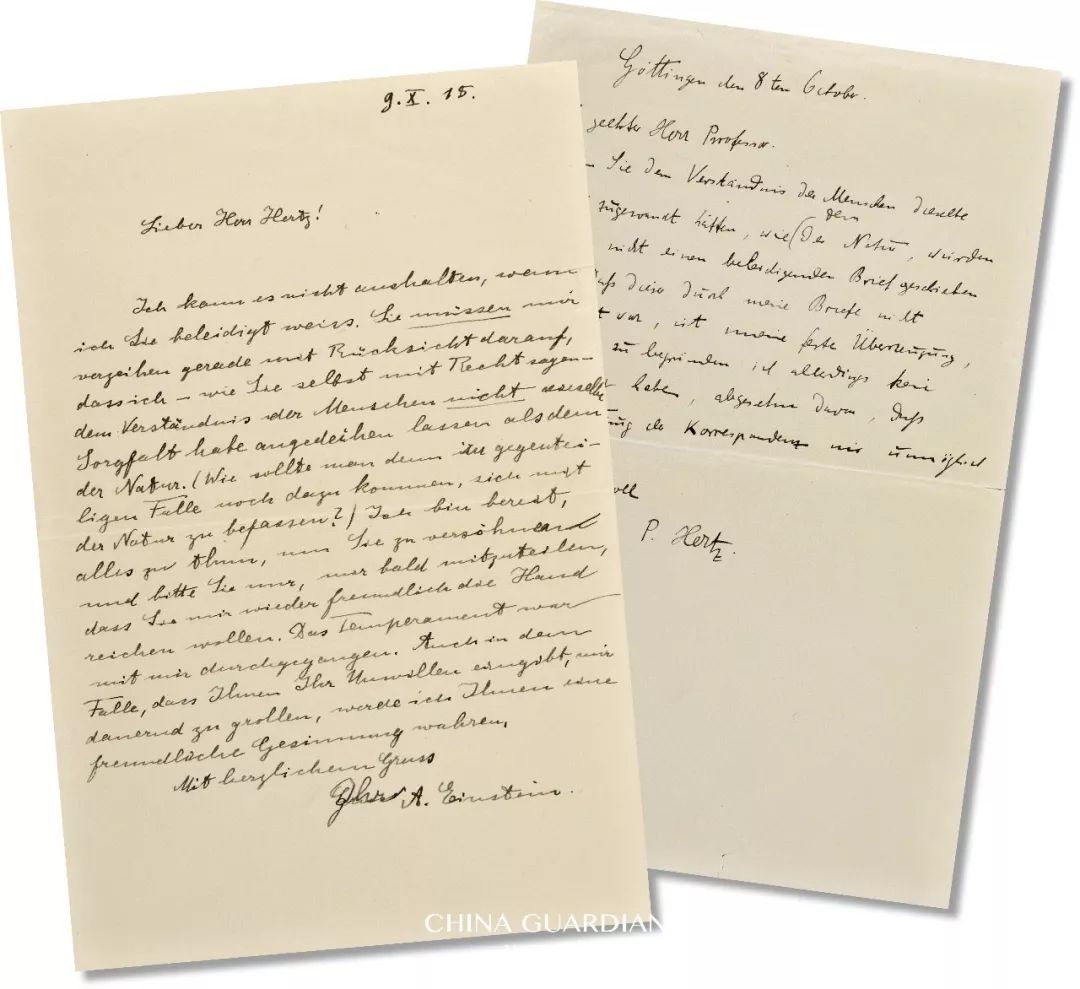 9. X. 15.
Lieber Herr Hertz!
Ich kann es nicht aushalten, wenn
ich Sie beleidigt weiss. Sie müssen mir
verzeihen gerade mit Rücksicht darauf,
dass ich – wie Sie selbst mit Recht sagen –
dem Verständnis der Menschen nicht dieselbe
Sorgfalt habe angedeihen lassen als dem
der Natur. (Wie sollte man denn im gegentei-
ligen Falle noch dazu kommen, sich mit
der Natur zu befassen?) Ich bin bereit,
alles zu thun, um Sie zu versöhnen und
und bitte Sie nur, mir bald mitzuteilen,
dass Sie mir wieder freundlich die Hand
reichen wollen. Das Temperament war
mit mir durchgegangen. Auch in dem
Falle, dass Ihnen Ihr Unwillen eingibt, mir
dauernd zu grollen, werde ich Ihnen eine
freundliche Gesinnung wahren.
Mit herzlichem Gruss
Ihr A. Einstein.
Göttingen den 8ten October.
geehrter Herr Professor.
Sie dem Verständnis der Menschen dieselbe
zugewandt hätten, wie dem der Natur, würden
nicht einen beleidigenden Brief geschrieben
dieser durch meine Briefe nicht
t war, ist meine feste Überzeugung,
zu begründen ich allerdings kein
haben, abgesehn davon, daß
ung der Korrespondenz mir unmöglich
voll
P. Hertz.
CHINA GUARDIAN